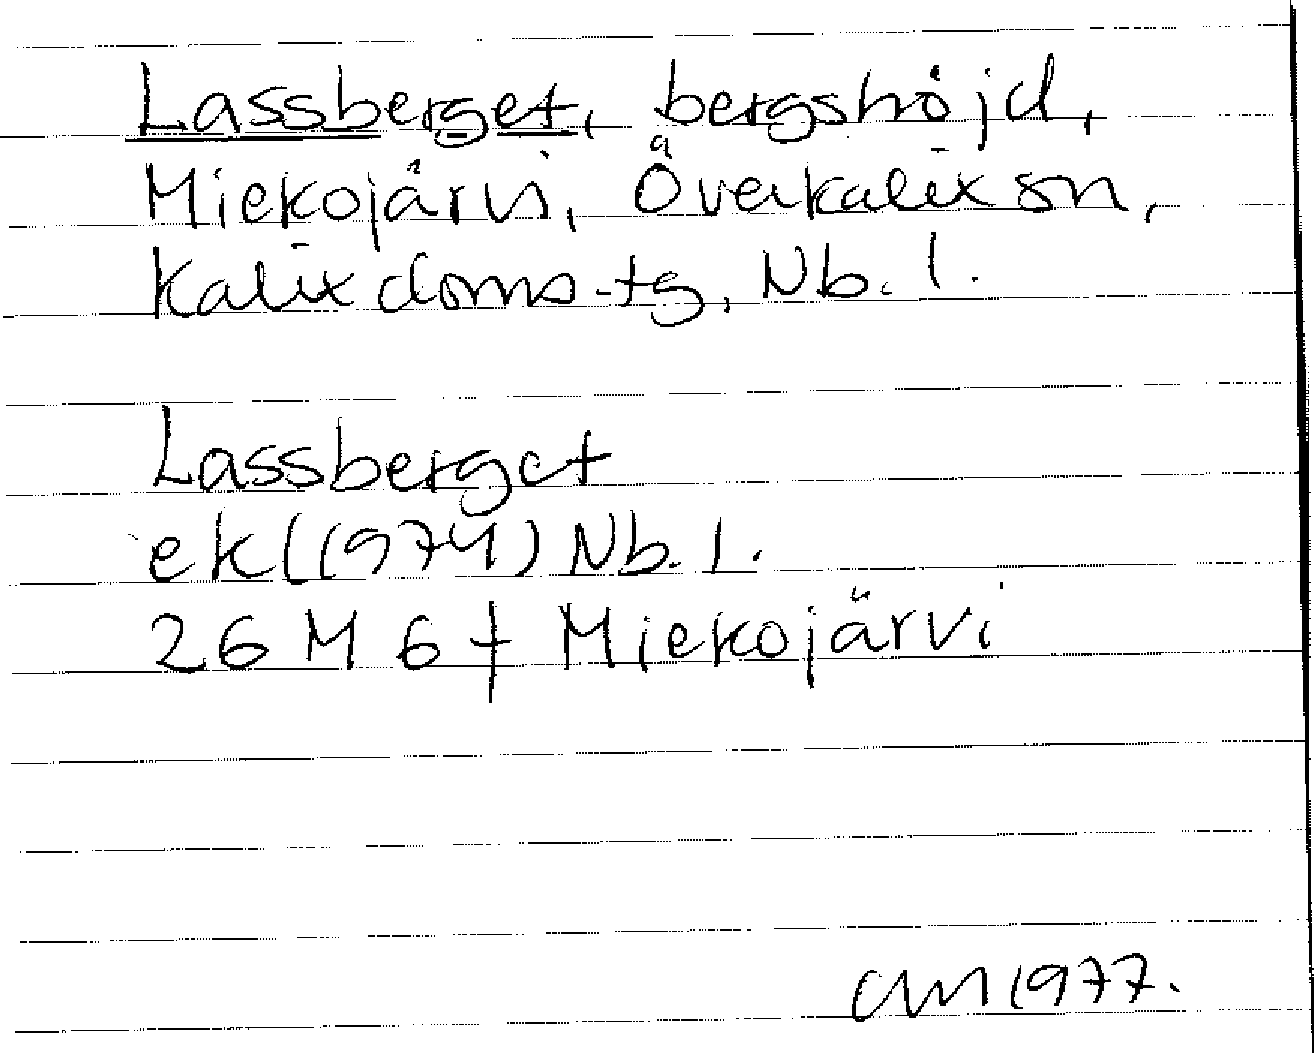 Lassberget, bergshöjd,
Miekojärvi, Överkalix sn,
Kalix doms.tg, Nb. l.
Lassberget
ek (1974) Nb. l.
26 M 6 f Miekojärvi
CM 1977.